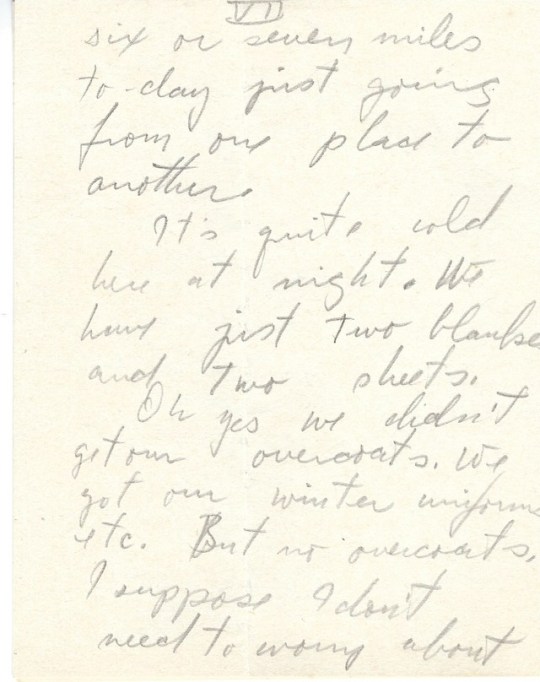 VI
six or seven miles
to-day just going
from one place to
another.
It's quite cold
here at night. We
have just two blankets
and two sheets.
Oh yes we didn't
get our overcoats. We
got our winter uniforms
etc. But no overcoats.
I suppose I don't
need to worry about